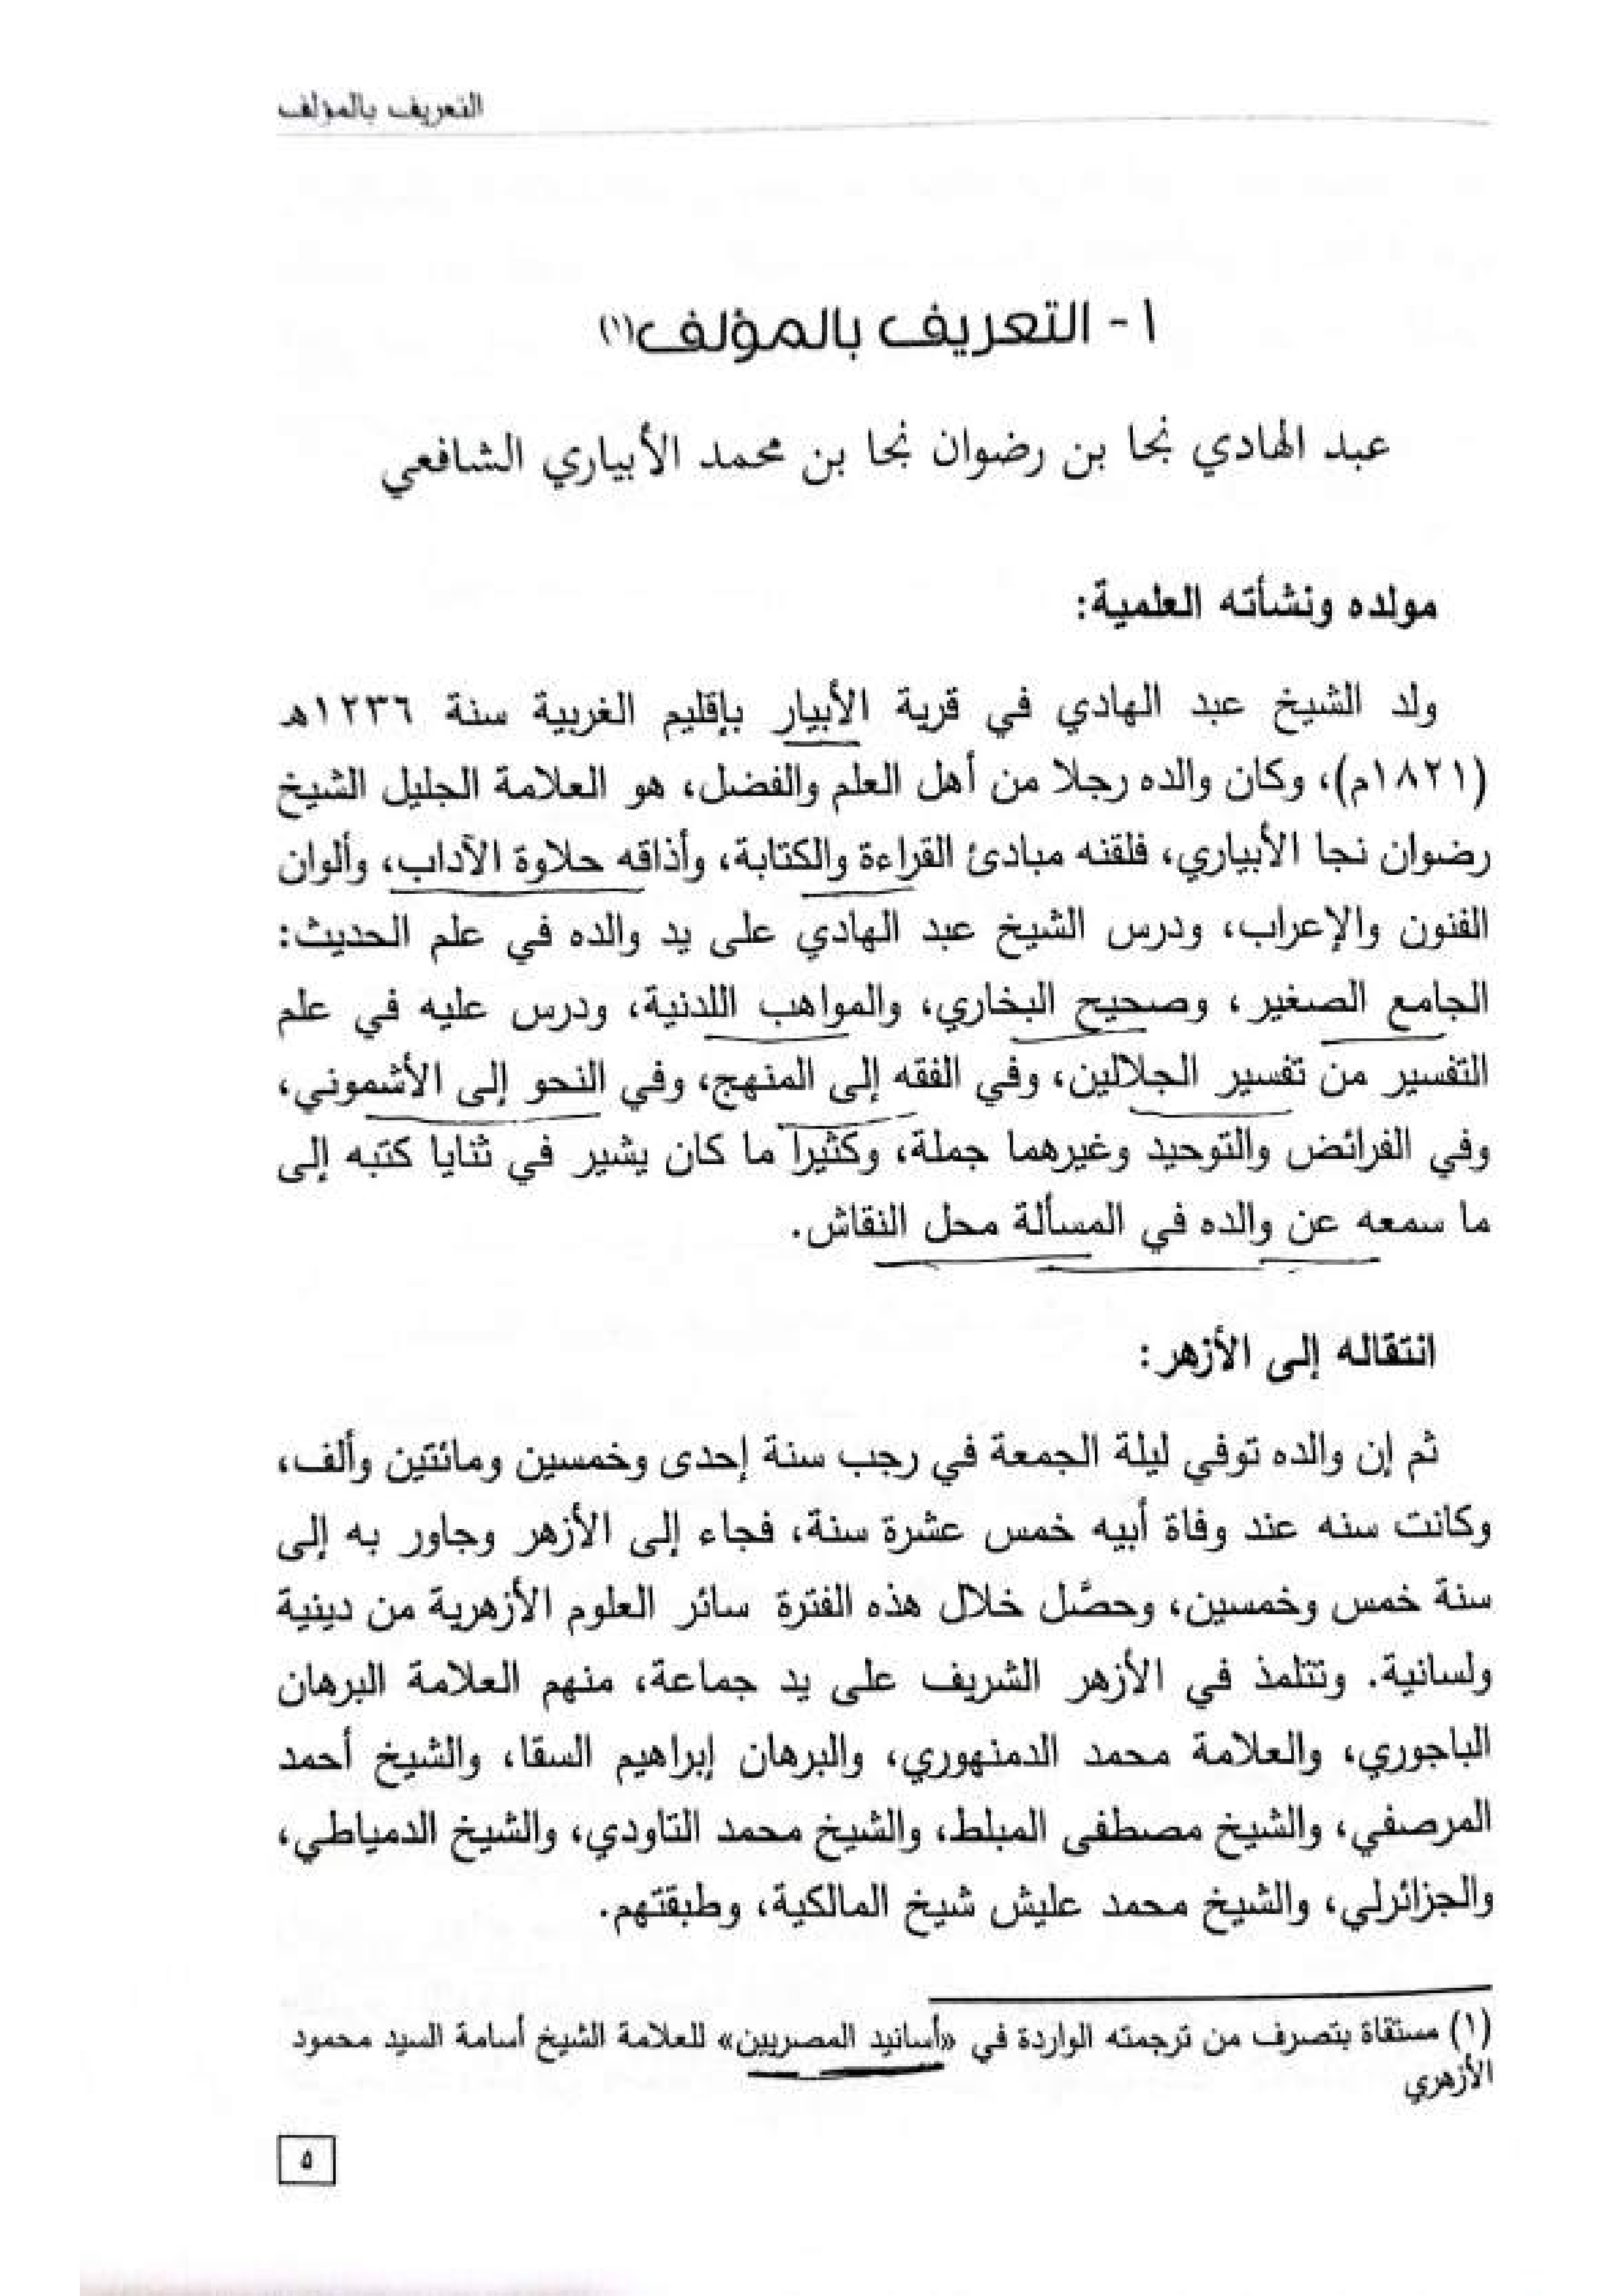 التعريف بالمؤلف
١- التعريف بالمؤلف(١)
عبد الهادي نجا بن رضوان نجا بن محمد الأبياري الشافعي
مولده ونشأته العلمية:
ولد الشيخ عبد الهادي في قرية الأبيار بإقليم الغربية سنة ١٢٣٦هـ
(١٨٢١م)، وكان والده رجلا من أهل العلم والفضل، هو العلامة الجليل الشيخ
رضوان نجا الأبياري، فلقنه مبادئ القراءة والكتابة، وأذاقه حلاوة الآداب، وألوان
الفنون والإعراب، ودرس الشيخ عبد الهادي على يد والده في علم الحديث:
الجامع الصغير، وصحيح البخاري، والمواهب اللدنية، ودرس عليه في علم
التفسير من تفسير الجلالين، وفي الفقه إلى المنهج، وفي النحو إلى الأشموني،
وفي الفرائض والتوحيد وغيرهما جملة، وكثيرا ما كان يشير في ثنايا كتبه إلى
ما سمعه عن والده في المسألة محل النقاش.
انتقاله إلى الأزهر:
ثم إن والده توفي ليلة الجمعة في رجب سنة إحدى وخمسين ومائتين وألف،
وكانت سنه عند وفاة أبيه خمس عشرة سنة، فجاء إلى الأزهر وجاور به إلى
سنة خمس وخمسين، وحصَّل خلال هذه الفترة سائر العلوم الأزهرية من دينية
ولسانية. وتتلمذ في الأزهر الشريف على يد جماعة، منهم العلامة البرهان
الباجوري، والعلامة محمد الدمنهوري، والبرهان إبراهيم السقا، والشيخ أحمد
المرصفي، والشيخ مصطفى المبلط، والشيخ محمد التاودي، والشيخ الدمياطي،
والجزائرلي، والشيخ محمد عليش شيخ المالكية، وطبقتهم.
(١) مستقاة بتصرف من ترجمته الواردة في «أسانيد المصريين» للعلامة الشيخ أسامة السيد محمود
الأزهري
٥